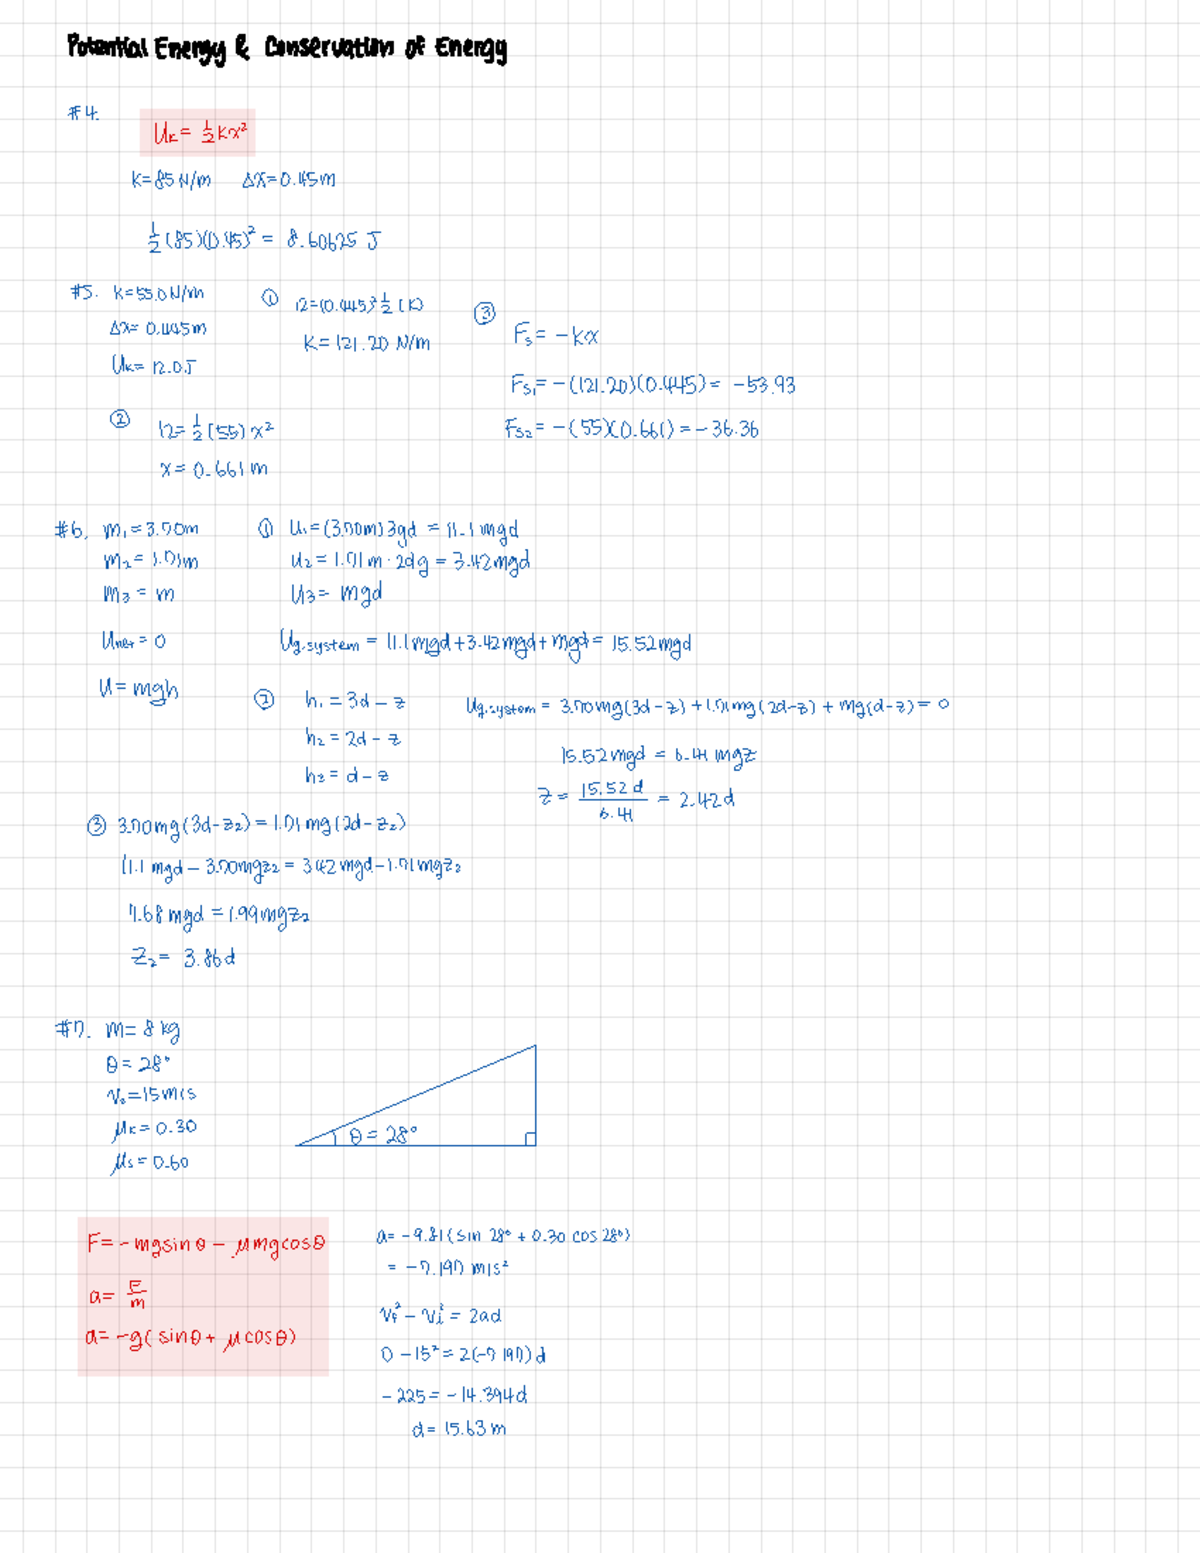 Potential Energy & Conservation of Energy
#4.
U_K = ½Kx²
K=85 N/m   Δx=0.45m
½(85)(0.45)² = 8.60625 J
#5. K=55.0 N/m
Δx= 0.445m
U_K= 12.0J
① 12=(0.445)²½(K)
K=121.20 N/m
② 12=½(55)x²
x=0.661m
③ F_s = -kx
F_s₁ = -(121.20)(0.445) = -53.93
F_s₂ = -(55)(0.661) = -36.36
#6. m₁=3.70m
m₂=1.71m
m₃ = m
U_net = 0
U=mgh
① U₁=(3.70m)3gd = 11.1mgd
U₂ = 1.71m·2dg = 3.42mgd
U₃= mgd
U_g.system = 11.1mgd+3.42mgd+mgd = 15.52mgd
② h₁ = 3d-z
h₂ = 2d-z
h₃ = d-z
U_g.system = 3.70mg(3d-z)+1.71mg(2d-z)+mg(d-z)=0
15.52mgd = 6.41mgz
z = 15.52d/6.41 = 2.42d
③ 3.70mg(3d-z₂)=1.71mg(2d-z₂)
11.1mgd-3.70mgz₂=3.42mgd-1.71mgz₂
7.68mgd=1.99mgz₂
z₂= 3.86d
#7. m= 8kg
θ= 28°
v₀=15m/s
μ_K=0.30
μ_s=0.60
θ= 28°
F=-mgsinθ-μmgcosθ
a= F/m
a=-g(sinθ+μcosθ)
a=-9.81(sin 28°+0.30 cos 28°)
= -7.197 m/s²
v_f²-v_i² = 2ad
0-15²=2(-7.197)d
-225=-14.394d
d= 15.63m